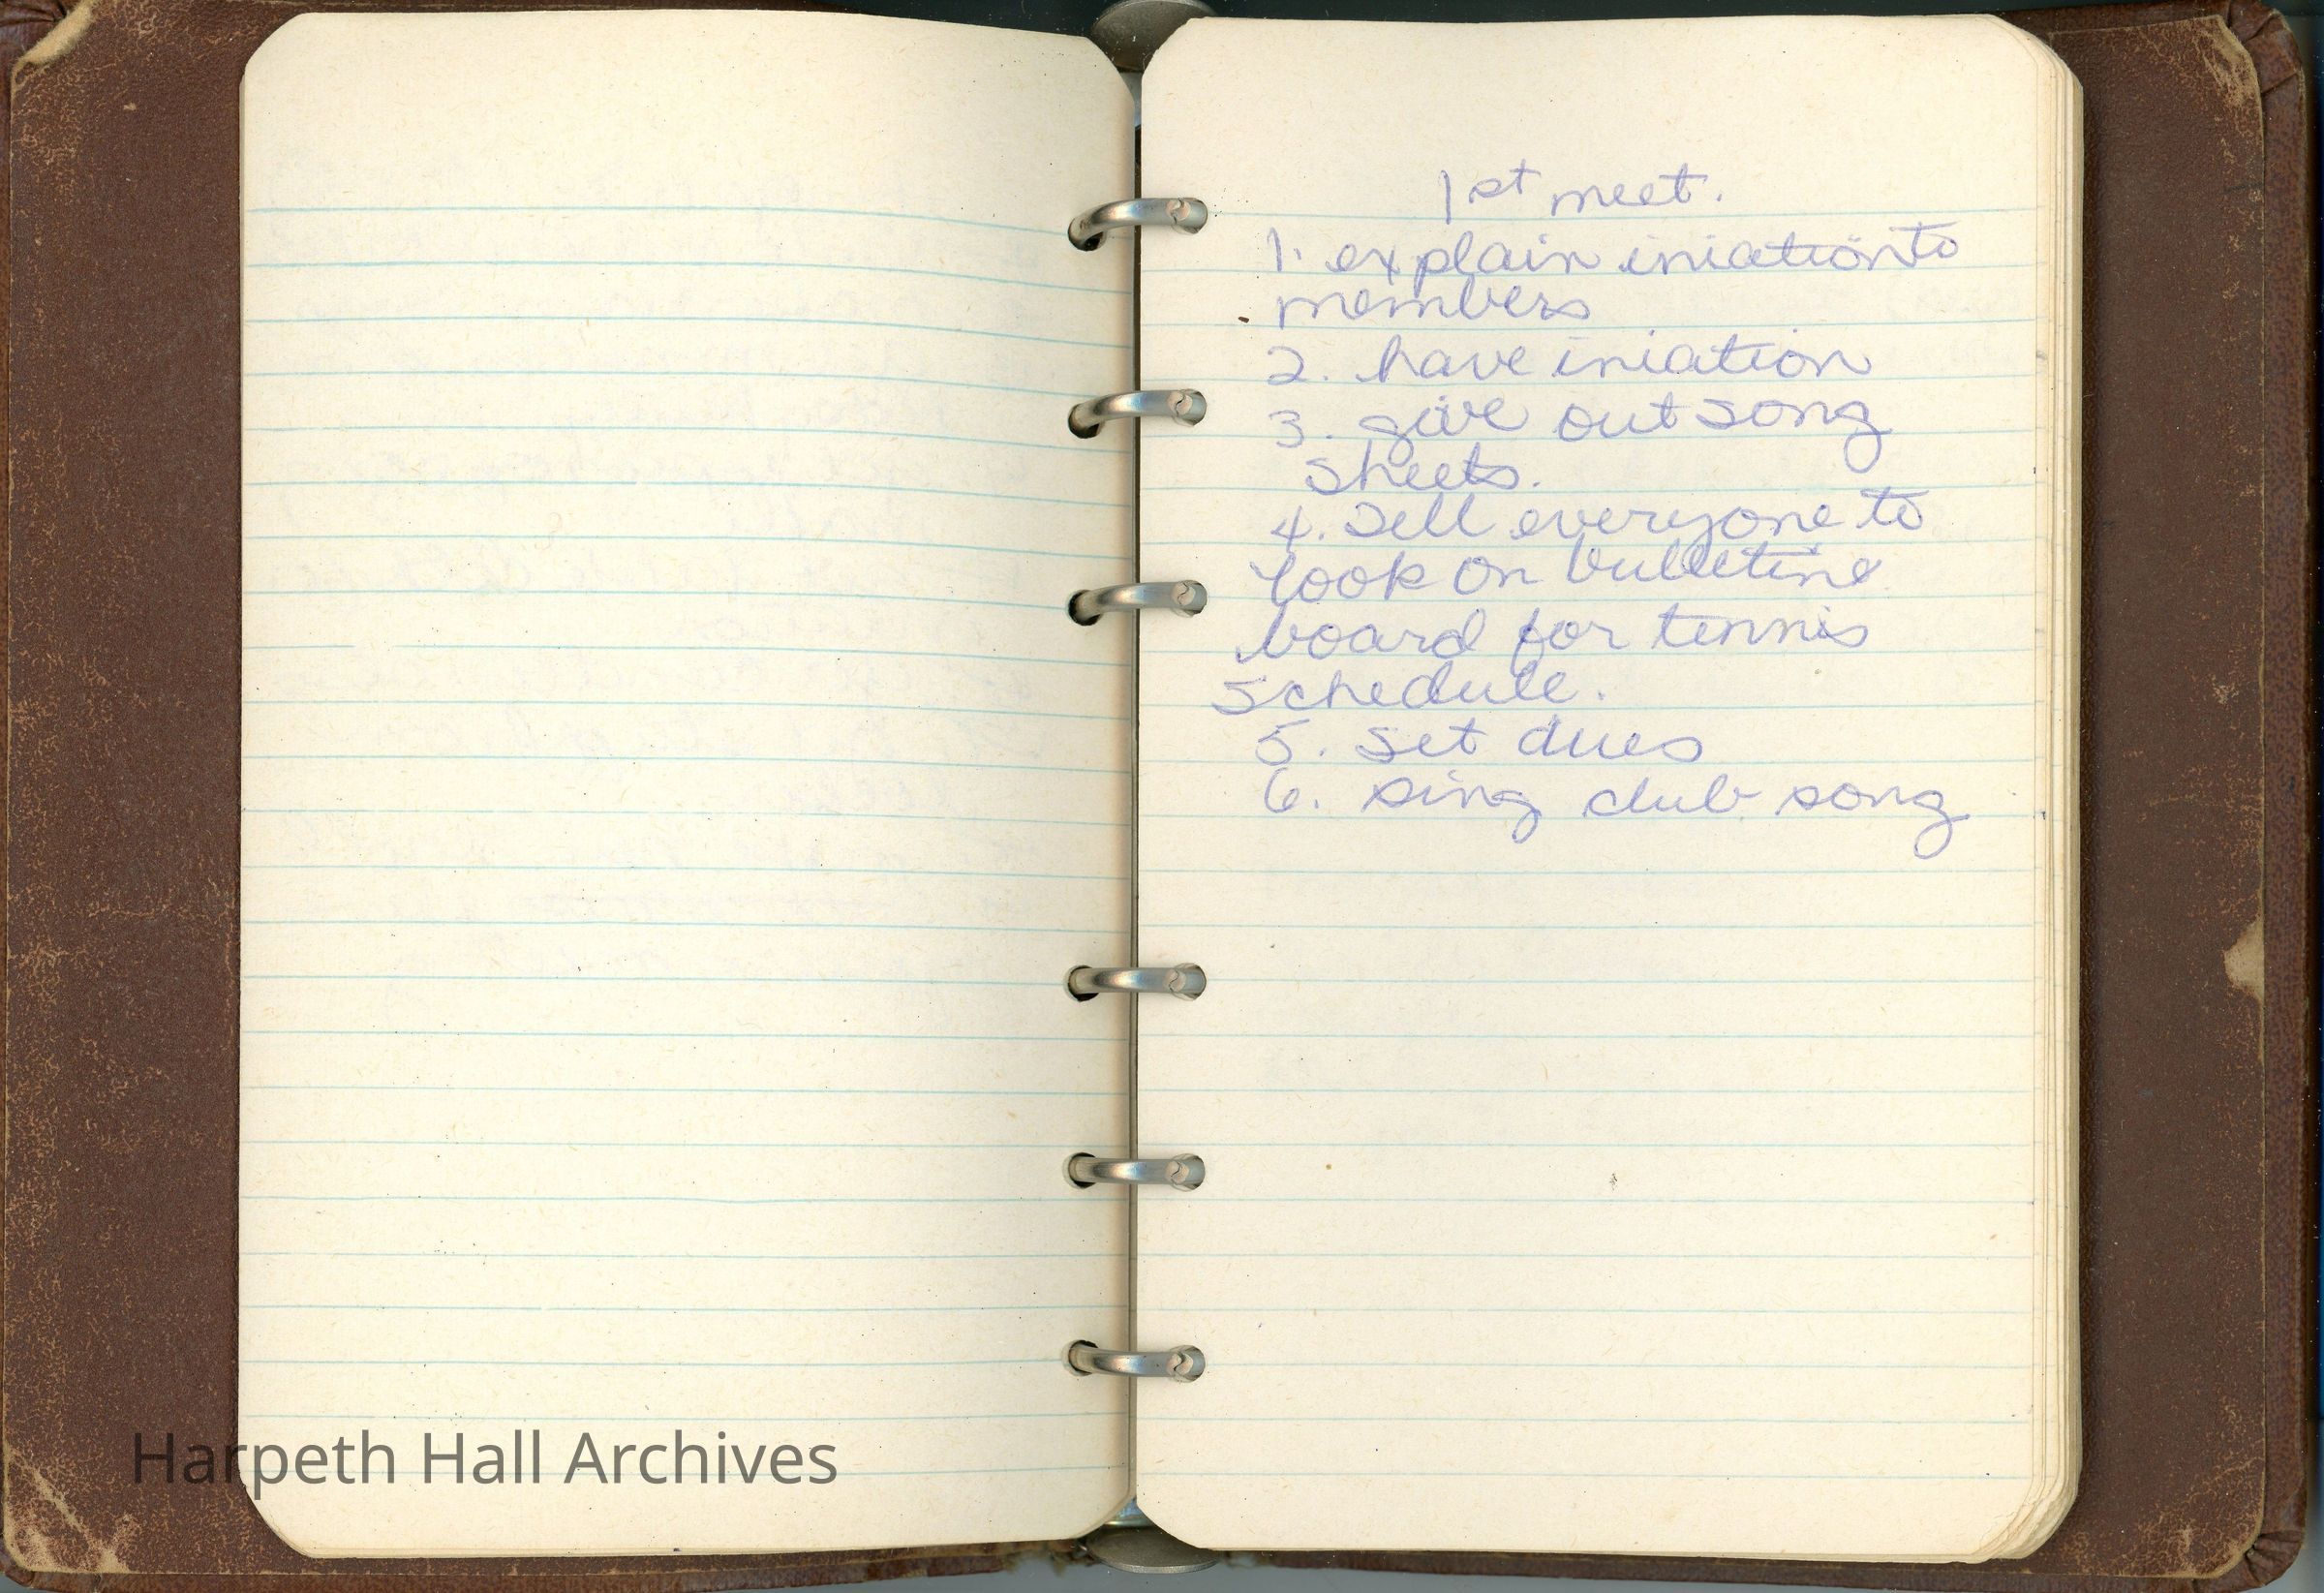 1st meet.
1. explain iniation to
members
2. have iniation
3. give out song
sheets.
4. Sell everyone to
look on bulletine
board for tennis
schedule.
5. set dues
6. sing club song
Harpeth Hall Archives